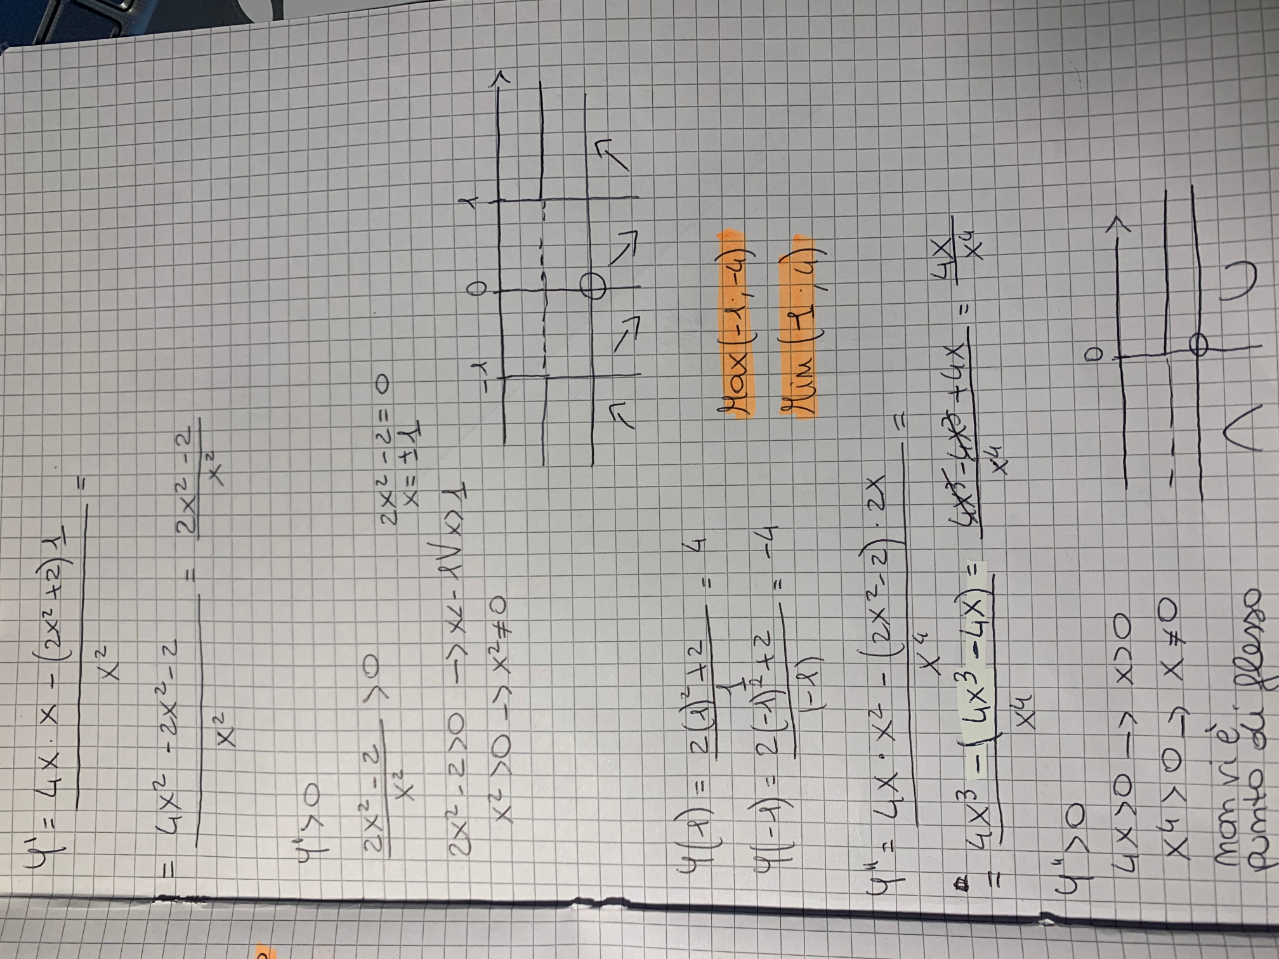 y' = 4x · x - (2x² + 2) 1 / x² =
= 4x² - 2x² - 2 / x² = 2x² - 2 / x²
y' > 0
2x² - 2 / x² > 0
2x² - 2 = 0
x = ±1
2x² - 2 > 0 → x < -1 V x > 1
x² > 0 → x² ≠ 0
-1 0 1
y(1) = 2(1)² + 2 / 1 = 4
y(-1) = 2(-1)² + 2 / (-1) = -4
Max (-1; -4)
Min (1; 4)
y'' = 4x · x² - (2x² - 2) · 2x / x⁴ =
= 4x³ - (4x³ - 4x) / x⁴ = 4x³ - 4x³ + 4x / x⁴ = 4x / x⁴
y'' > 0
4x > 0 → x > 0
x⁴ > 0 → x ≠ 0
0
non vi è
punto di flesso